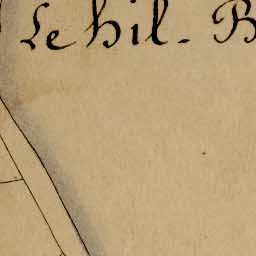 Le hil - B